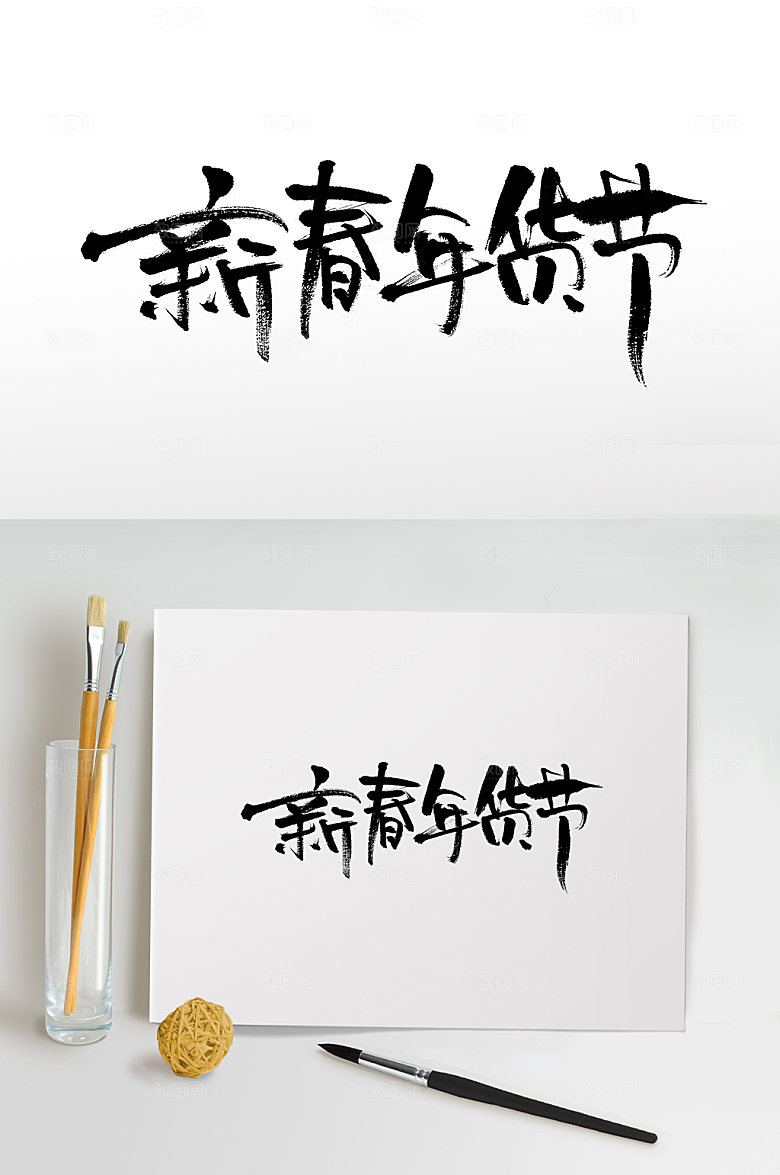 新春年货节
新春年货节